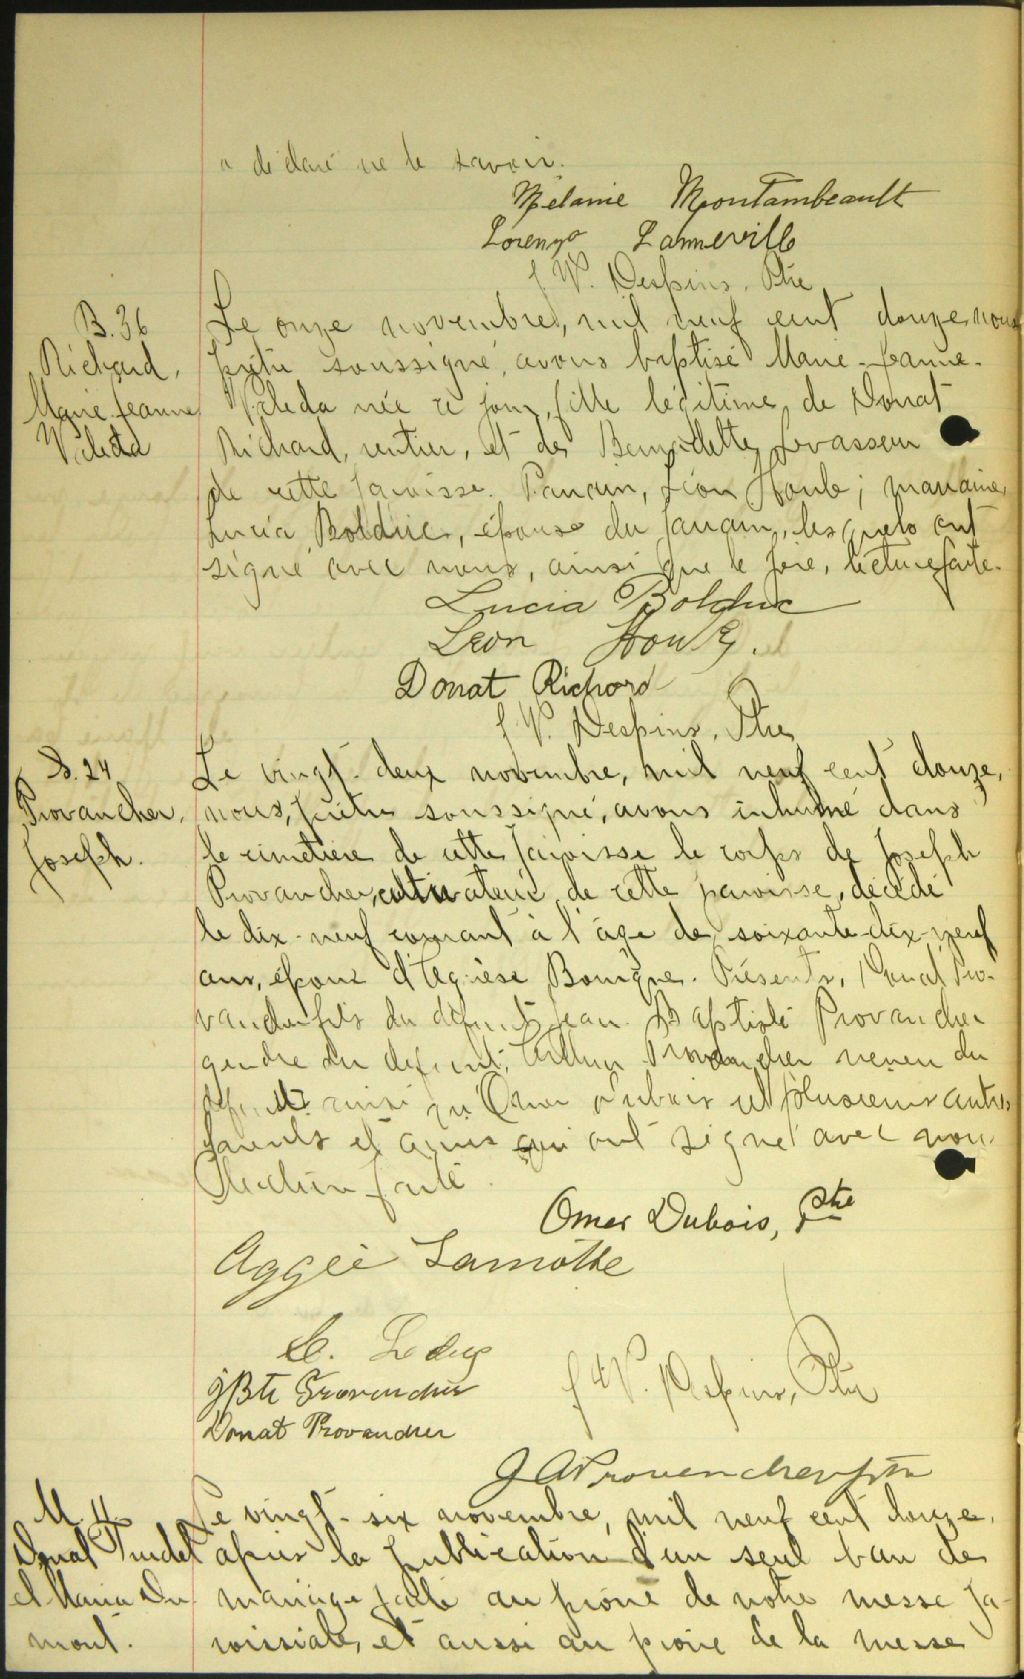 a déclaré ne le savoir.
Mélanie Montambeault
Lorenzo Lanneville
J. W. Despins, Ptre
B. 36
Richard,
Marie Jeanne
Valeda
Le onze novembre, mil neuf cent douze, nous
prêtre soussigné, avons baptisé Marie-Jeanne-
Valeda née ce jour, fille légitime de Donat
Richard, rentier, et de Bernadette Levasseur
de cette paroisse. Parrain, Léon Houle; marraine,
Lucia Bolduc, épouse du parrain, lesquels ont
signé avec nous, ainsi que le père, lecture faite.
Lucia Bolduc
Leon Houle.
Donat Richard
J. W. Despins, Ptre
S. 24
Provancher,
Joseph.
Le vingt-deux novembre, mil neuf cent douze,
nous, prêtre soussigné, avons inhumé dans
le cimetière de cette paroisse le corps de Joseph
Provancher, cultivateur de cette paroisse, décédé
le dix-neuf courant à l'âge de soixante-dix-neuf
ans, époux d' Bourque. Présents, Donat Pro-
vancher fils du défunt, Jean-Baptiste Provancher
gendre du défunt, Arthur Provancher neveu du
défunt ainsi qu'Omer Dubois et plusieurs autres
parents et amis qui ont signé avec nous
lecture faite.
Omer Dubois, Ptre
Aggée Lamothe
C. Leduc
J Bte Provencher
J. W. Despins, Ptre
Donat Provancher
J A Provencher ptre
M. 4
Donat Trudel
et Maria Du-
mont.
Le vingt-six novembre, mil neuf cent douze,
après la publication d'un seul ban de
mariage faite au prône de notre messe pa-
roissiale, et aussi au prône de la messe